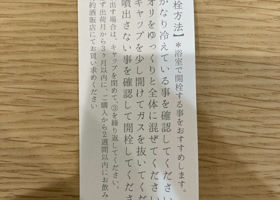 栓方法】＊浴室で開栓する事をおすすめします。
かなり冷えている事を確認してください
オリをゆっくりと全体に混ぜてください
キャップを少し開けてガスを抜いてくだ
噴出さない事を確認して開栓してくださ
出す場合は、キャップを閉めて、③を繰り返してください。
ず出荷月から3ヶ月以内に、ご購入から2週間以内にお飲み
約酒販店にてお買い求めください